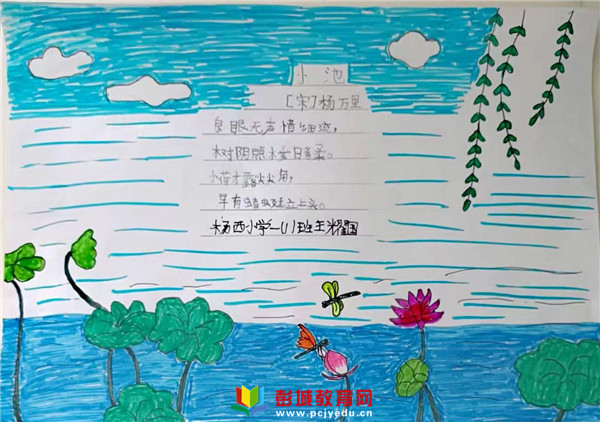 小池
[宋]杨万里
泉眼无声惜细流,
树阴照水爱晴柔。
小荷才露尖尖角,
早有蜻蜓立上头。
杨西小学一(1)班王耀国
彭城教育网
www.pcjyedu.cn